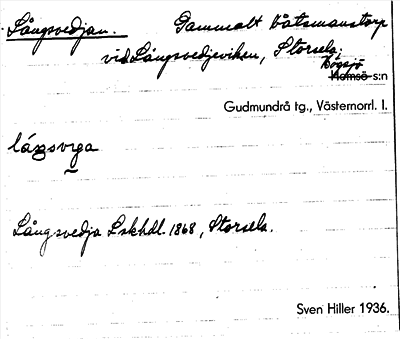 Långsvedjan. Gammalt båtsmanstorp
vid Långsvedjeviken, Storsela;
Högsjö
Hemsö s:n
Gudmundrå tg., Västernorrl. l.
Långsvedja Lskhdl. 1868, Storsela.
Sven Hiller 1936.